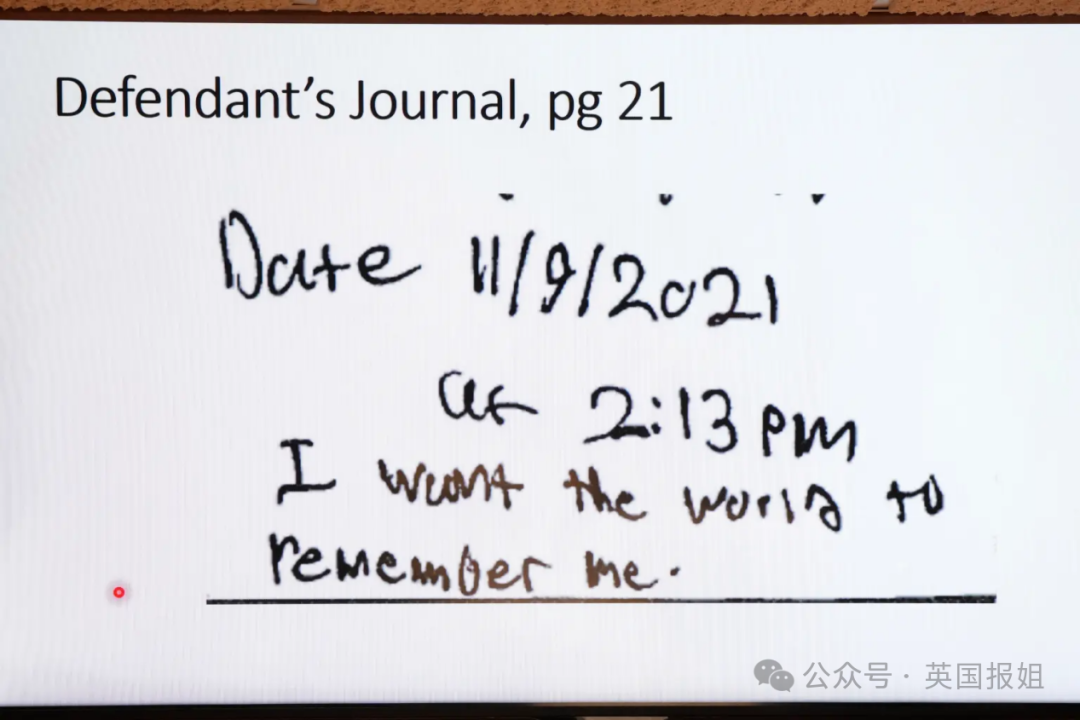 Defendant's Journal, pg 21
Date 11/9/2021
at 2:13 pm
I want the world to
remember me.
公众号 · 英国报姐